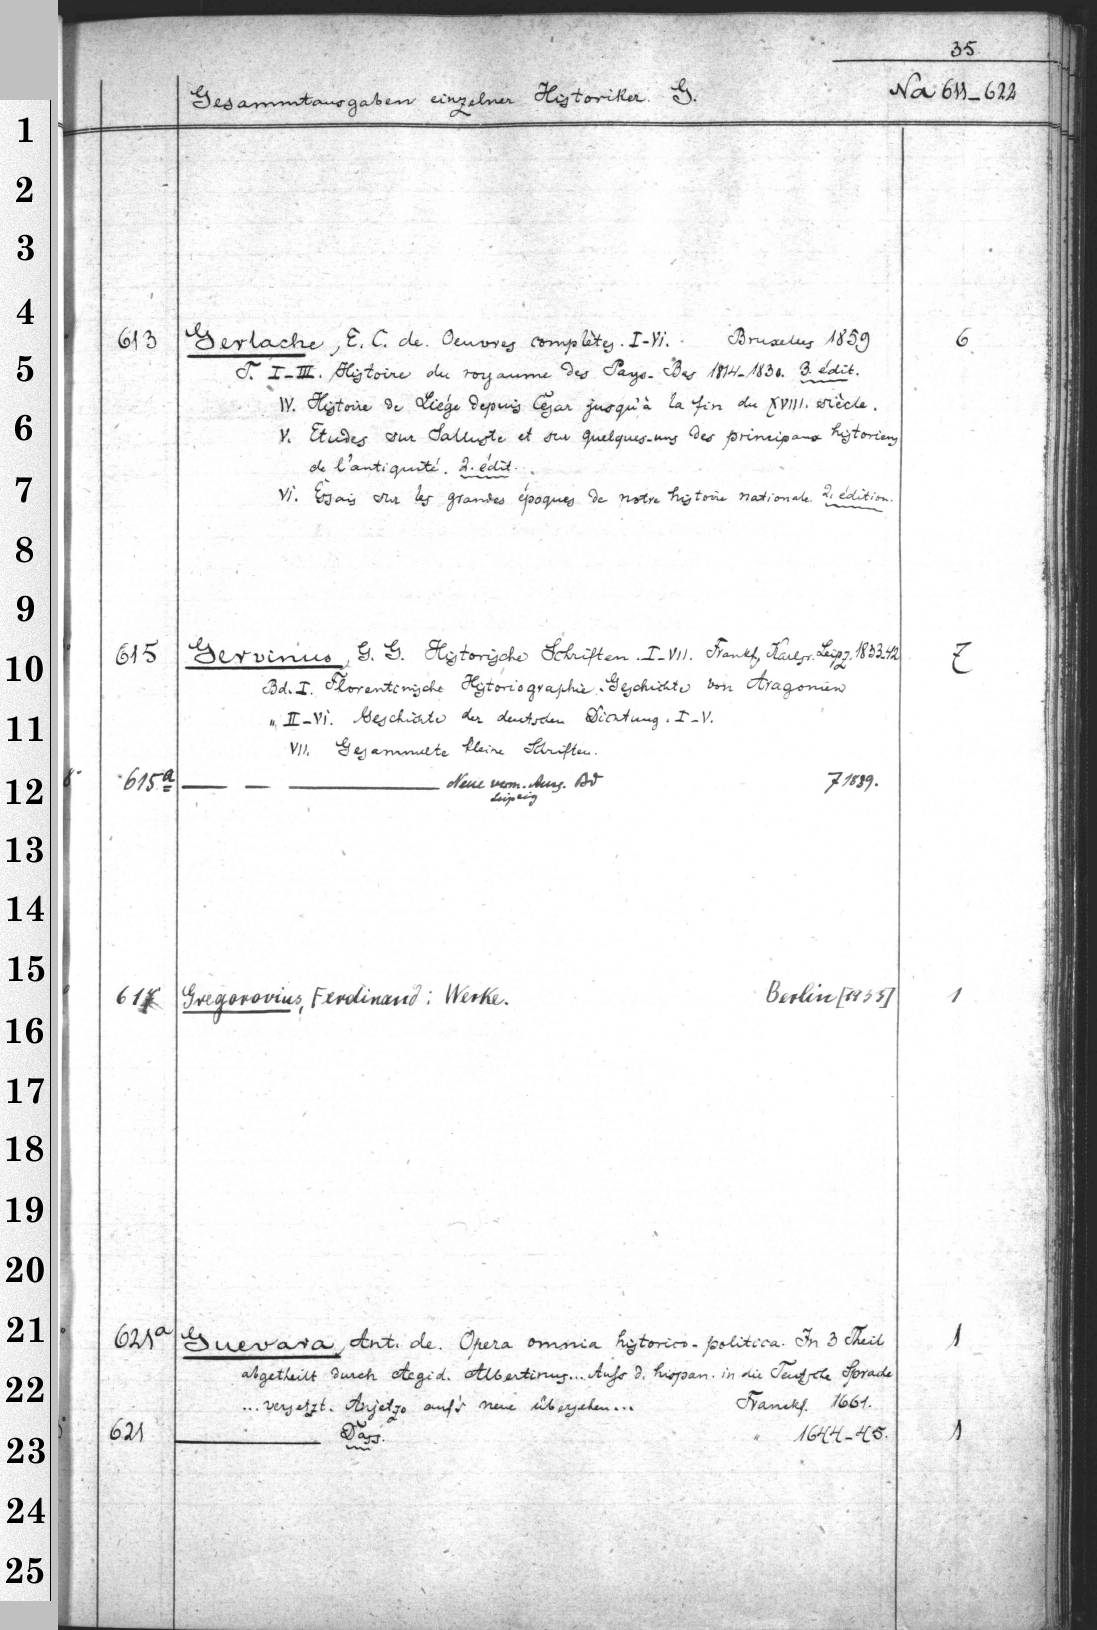 35
Gesammtausgaben einzelner Historiker. G. Na 611-622
1
2
3
4
613 Gerlache, E. C. de. Oeuvres complètes. I-VI. Bruxelles 1859 6
5
T. I-III. Histoire du royaume des Pays-Bas 1814-1830. 3. édit.
IV. Histoire de Liége depuis César jusqu'à la fin du XVIII. siècle.
6
V. Etudes sur Salluste et sur quelques-uns des principaux historiens
de l'antiquité. 2. édit.
7
VI. Essais sur les grandes époques de notre histoire nationale. 2. édition.
8
9
10
615 Gervinus, G. G. Historische Schriften. I-VII. Frankf. Karlsr. Leipz. 1833-42. 7
Bd. I. Florentinische Historiographie. Geschichte von Aragonien
11
" II-VI. Geschichte der deutschen Dichtung. I-V.
VII. Gesammelte kleine Schriften.
12
615a — — — Neue verm. Ausg. Bd 7 1839.
Leipzig
13
14
15
617 Gregorovius, Ferdinand: Werke. Berlin [1935] 1
16
17
18
19
20
21
621a Guevara, Ant. de. Opera omnia historico-politica. In 3 Theil 1
22
abgetheilt durch Aegid. Albertinus... Auss d. hispan. in die Teutsche Sprache
... versetzt. Anjetzo auf's neue übersehen... Franckf. 1661.
23
621 — Dass. " 1644-45. 1
24
25